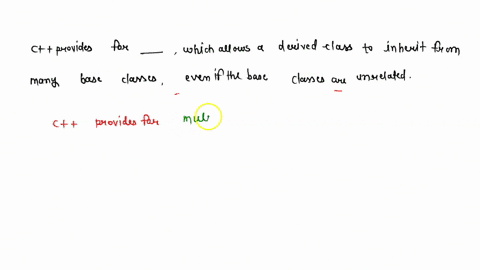 C++ provides for ___, which allows a derived class to inherit from
many base classes, even if the base classes are unrelated.
C++ provides for mul